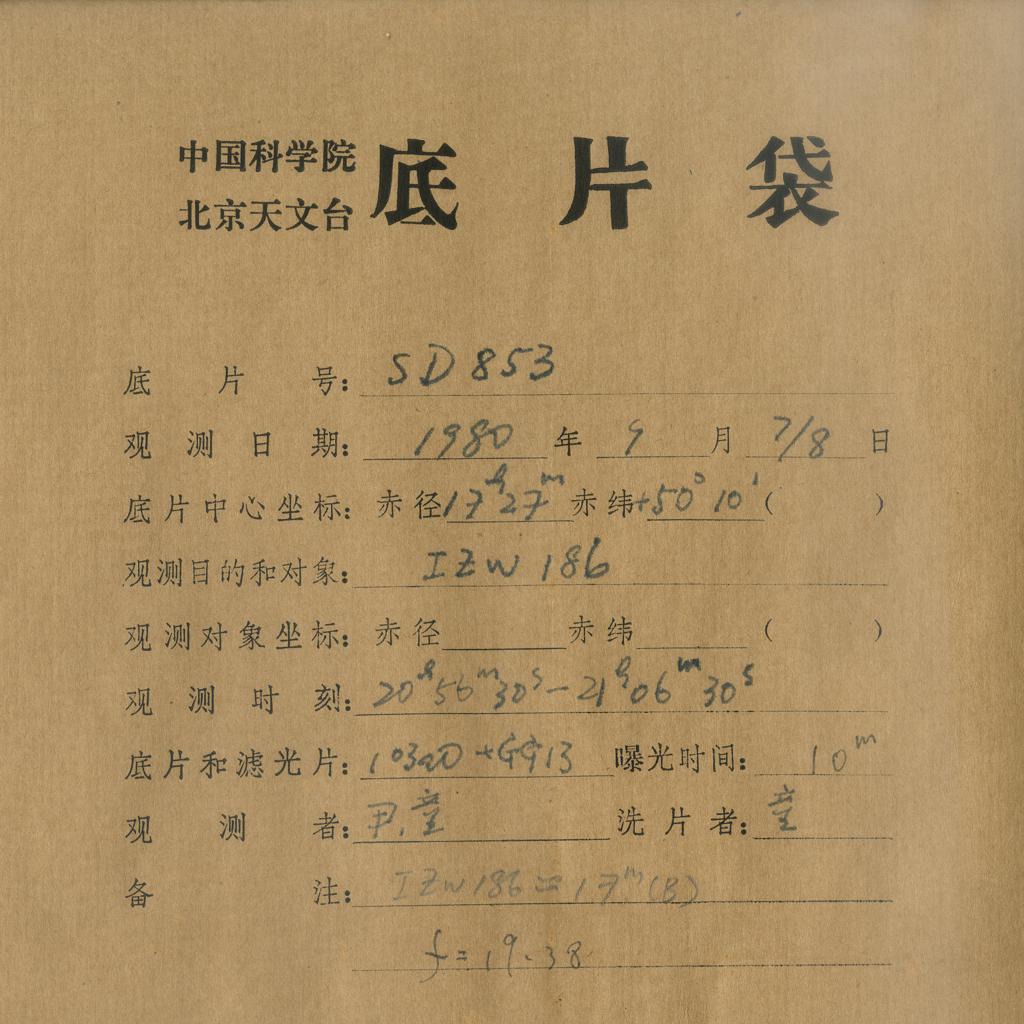 中国科学院
北京天文台
底片袋
底片号：SD853
观测日期：1980年9月7/8日
底片中心坐标：赤径17ʰ27ᵐ赤纬+50°10′(　)
观测目的和对象：IZW 186
观测对象坐标：赤径　赤纬　(　)
观测时刻：20ʰ56ᵐ30ˢ—21ʰ06ᵐ30ˢ
底片和滤光片：103aO+GG13 曝光时间：10ᵐ
观测者：尹.童 洗片者：童
备注：IZW186≈17ᵐ(B)
f=19.38